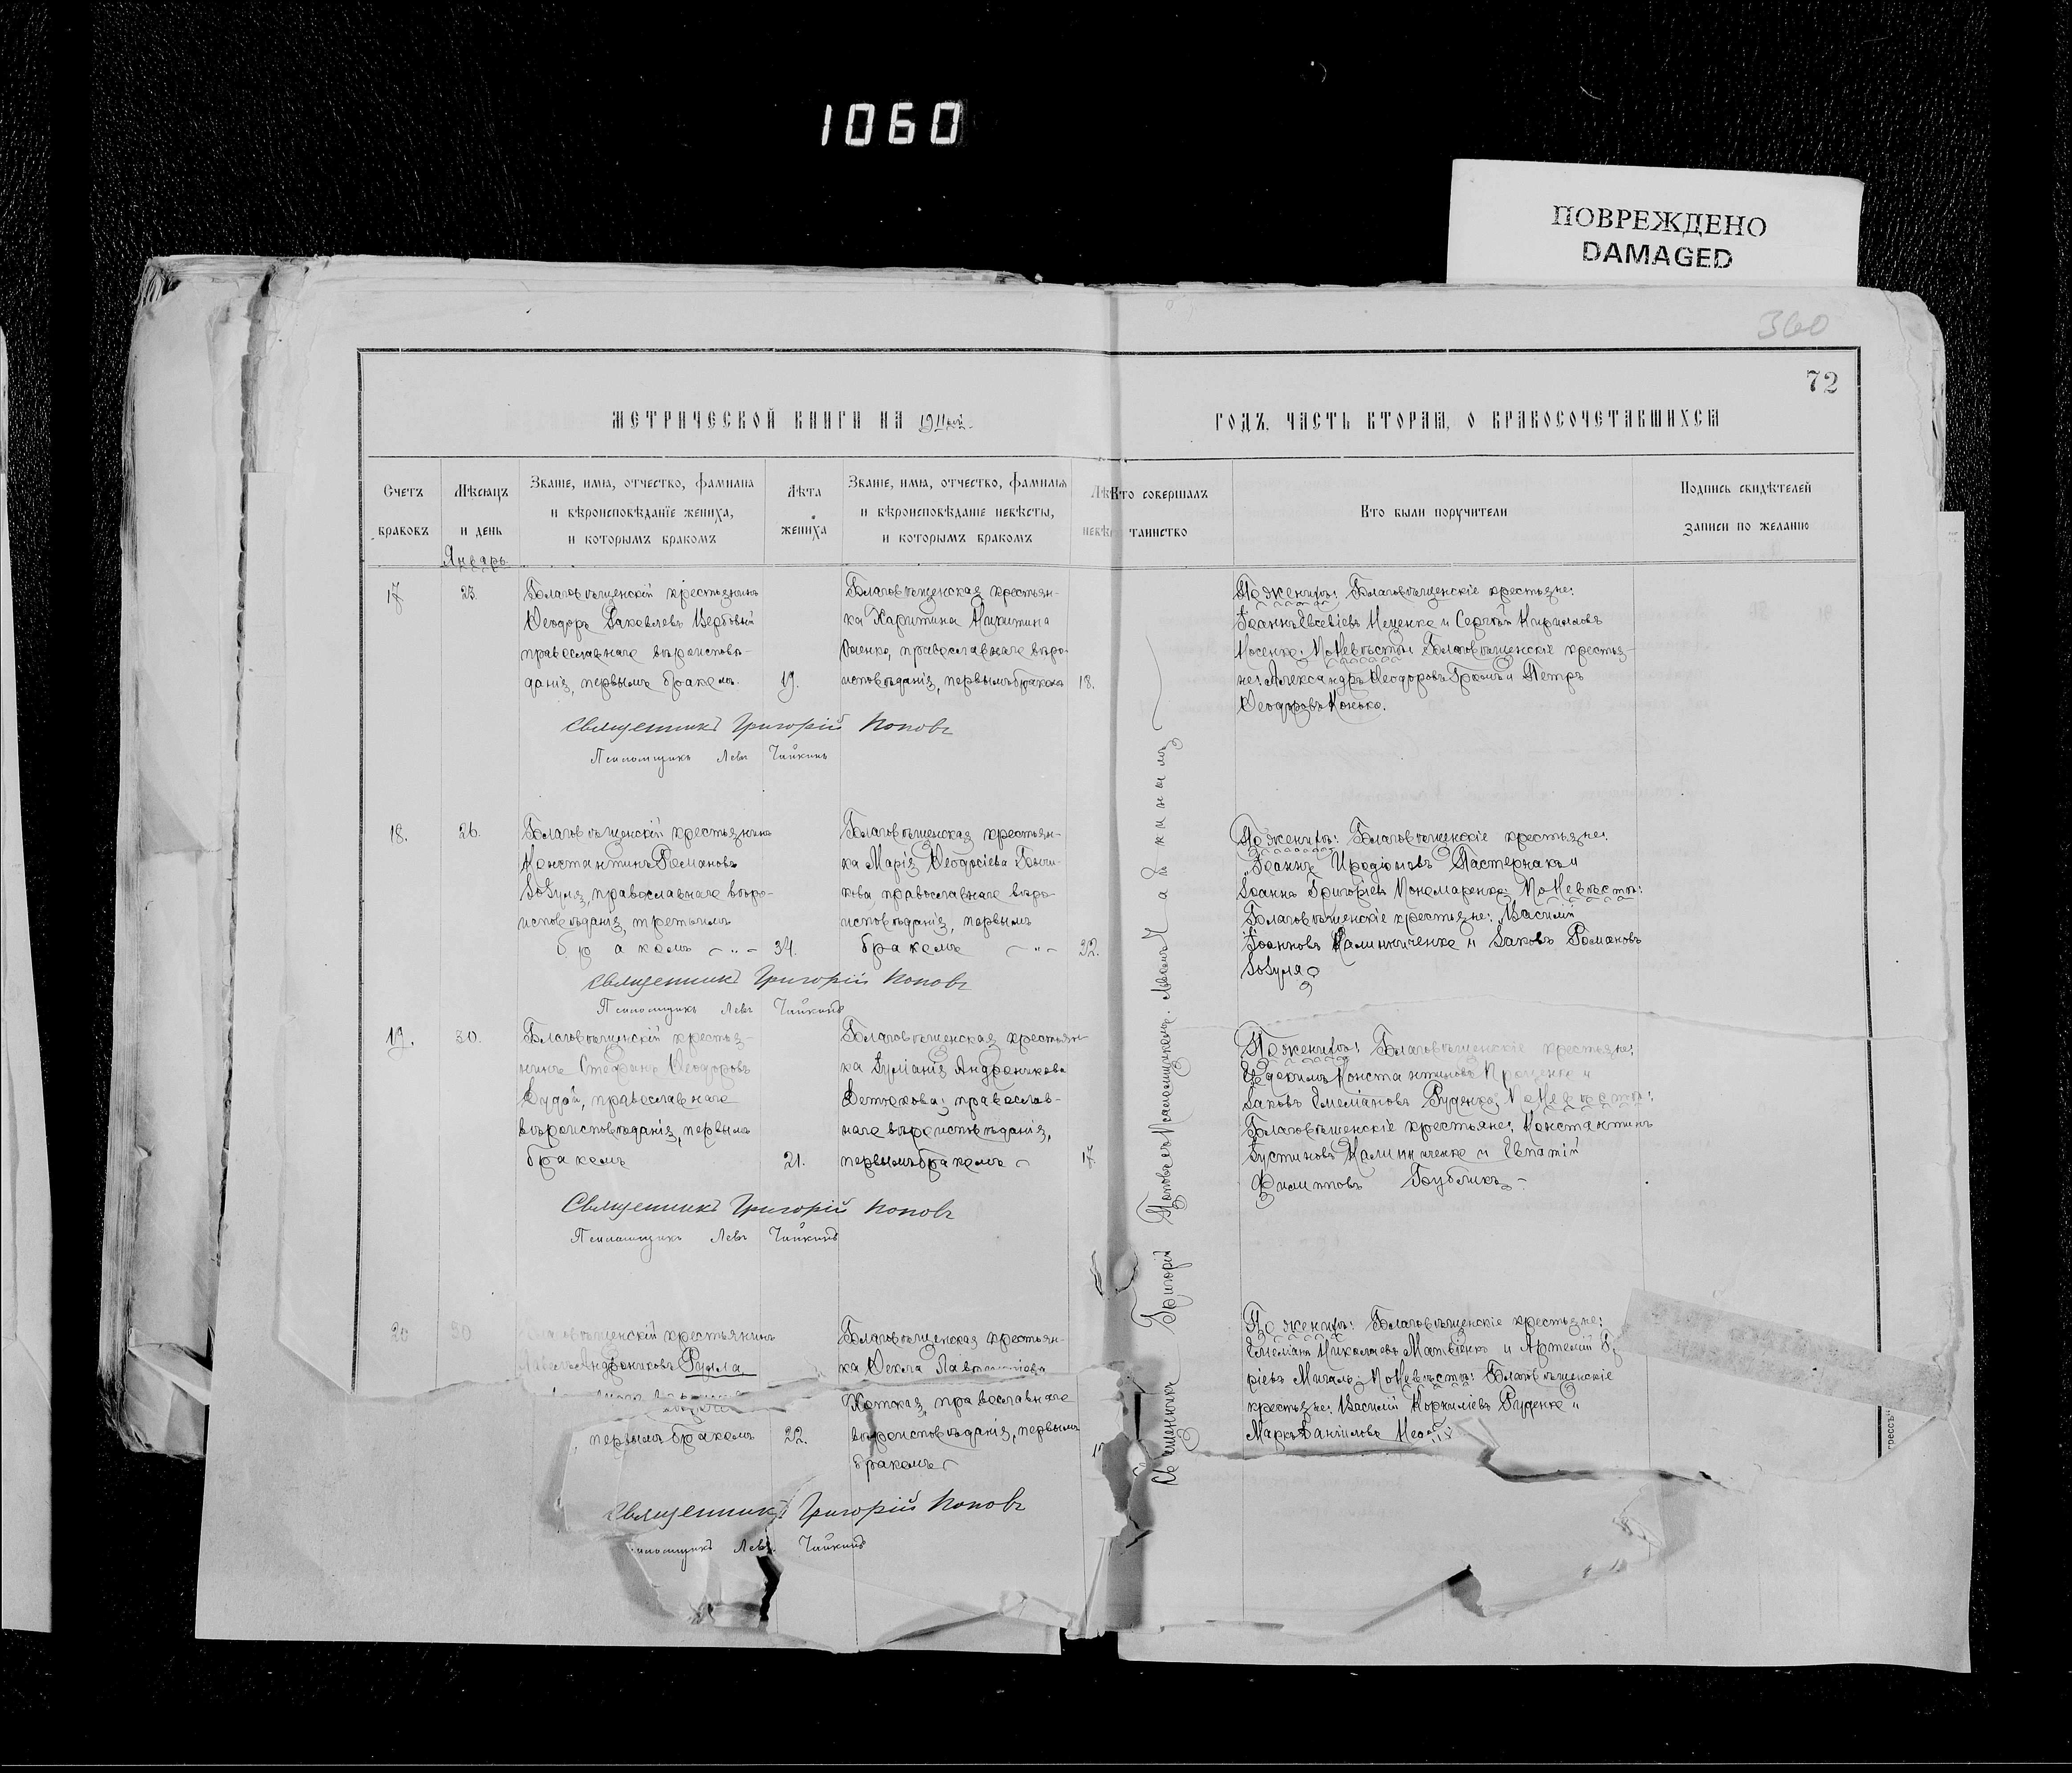 1060
ПОВРЕЖДЕНО
DAMAGED
360
72
МЕТРИЧЕСКОЙ КНИГИ НА 1911 ГОДЪ, ЧАСТЬ ВТОРАЯ, О БРАКОСОЧЕТАВШИХСЯ
Счетъ браковъ
Мѣсяцъ и день
Званіе, имя, отчество, фамилія и вѣроисповѣданіе жениха, и которымъ бракомъ
Лѣта жениха
Званіе, имя, отчество, фамилія и вѣроисповѣданіе невѣсты, и которымъ бракомъ
Кто совершалъ таинство
Кто были поручители
Подпись свидѣтелей записи по желанію
Январь
17
23.
Благовѣщенскій крестьянинъ
Ѳеодоръ Іаковлевъ Вербовый
православнаго вѣроисповѣ-
данія, первымъ бракомъ.
19.
Благовѣщенская крестьян-
ка Харитина Никитина
православнаго вѣро-
исповѣданія, первымъ бракомъ
18.
По женихѣ: Благовѣщенскіе крестьяне:
Іоаннъ Евсевіевъ и Сергій Кирилловъ
Носенко; По невѣстѣ: Благовѣщенскіе крестья-
не: Александръ Ѳеодоровъ и Петръ
Ѳеодоровъ Конько.
Священникъ Григорій Поповъ
Псаломщикъ Левъ Чайкинъ
18.
26.
Благовѣщенскій крестьянинъ
Константинъ Романовъ
православнаго вѣро-
исповѣданія, третьимъ
бракомъ
34.
Благовѣщенская крестьян-
ка Марія Ѳеодосіева Бончи-
кова, православнаго вѣро-
исповѣданія, первымъ
бракомъ
32.
По женихѣ: Благовѣщенскіе крестьяне:
Іоаннъ Иродіоновъ Пастернакъ и
Іоаннъ Григоріевъ Пономаренко; По невѣстѣ:
Благовѣщенскіе крестьяне: Василій
Іоанновъ Калиниченко и Іаковъ Романовъ
Священникъ Григорій Поповъ
Псаломщикъ Левъ Чайкинъ
19.
30.
Благовѣщенскій крестья-
нинъ Стефанъ Ѳеодоровъ
православнаго
вѣроисповѣданія, первымъ
бракомъ
21.
Благовѣщенская крестьян-
ка Іуліанія Андроникова
православ-
наго вѣроисповѣданія,
первымъ бракомъ
17.
По женихѣ: Благовѣщенскіе крестьяне:
Константиновъ Проценко и
Іаковъ Емеліановъ Руденко; По невѣстѣ:
Благовѣщенскіе крестьяне: Константинъ
Іустиновъ Калиниченко и Евпатій
Филипповъ Бубликъ
Священникъ Григорій Поповъ
Псаломщикъ Левъ Чайкинъ
20
30
крестьянинъ
Андрониковъ
первымъ бракомъ
22.
Благовѣщенская крестьян-
ка Ѳекла
православнаго
вѣроисповѣданія, первымъ
бракомъ
По женихѣ: Благовѣщенскіе крестьяне:
Емеліанъ Николаевъ Матвіенко и Артемій
По невѣстѣ: Благовѣщенскіе
крестьяне: Василій Корниліевъ Руденко и
Маркъ Даніиловъ
Священникъ Григорій Поповъ
Левъ Чайкинъ
Священникъ Григорій Поповъ съ Псаломщикомъ Львомъ Чайкинымъ